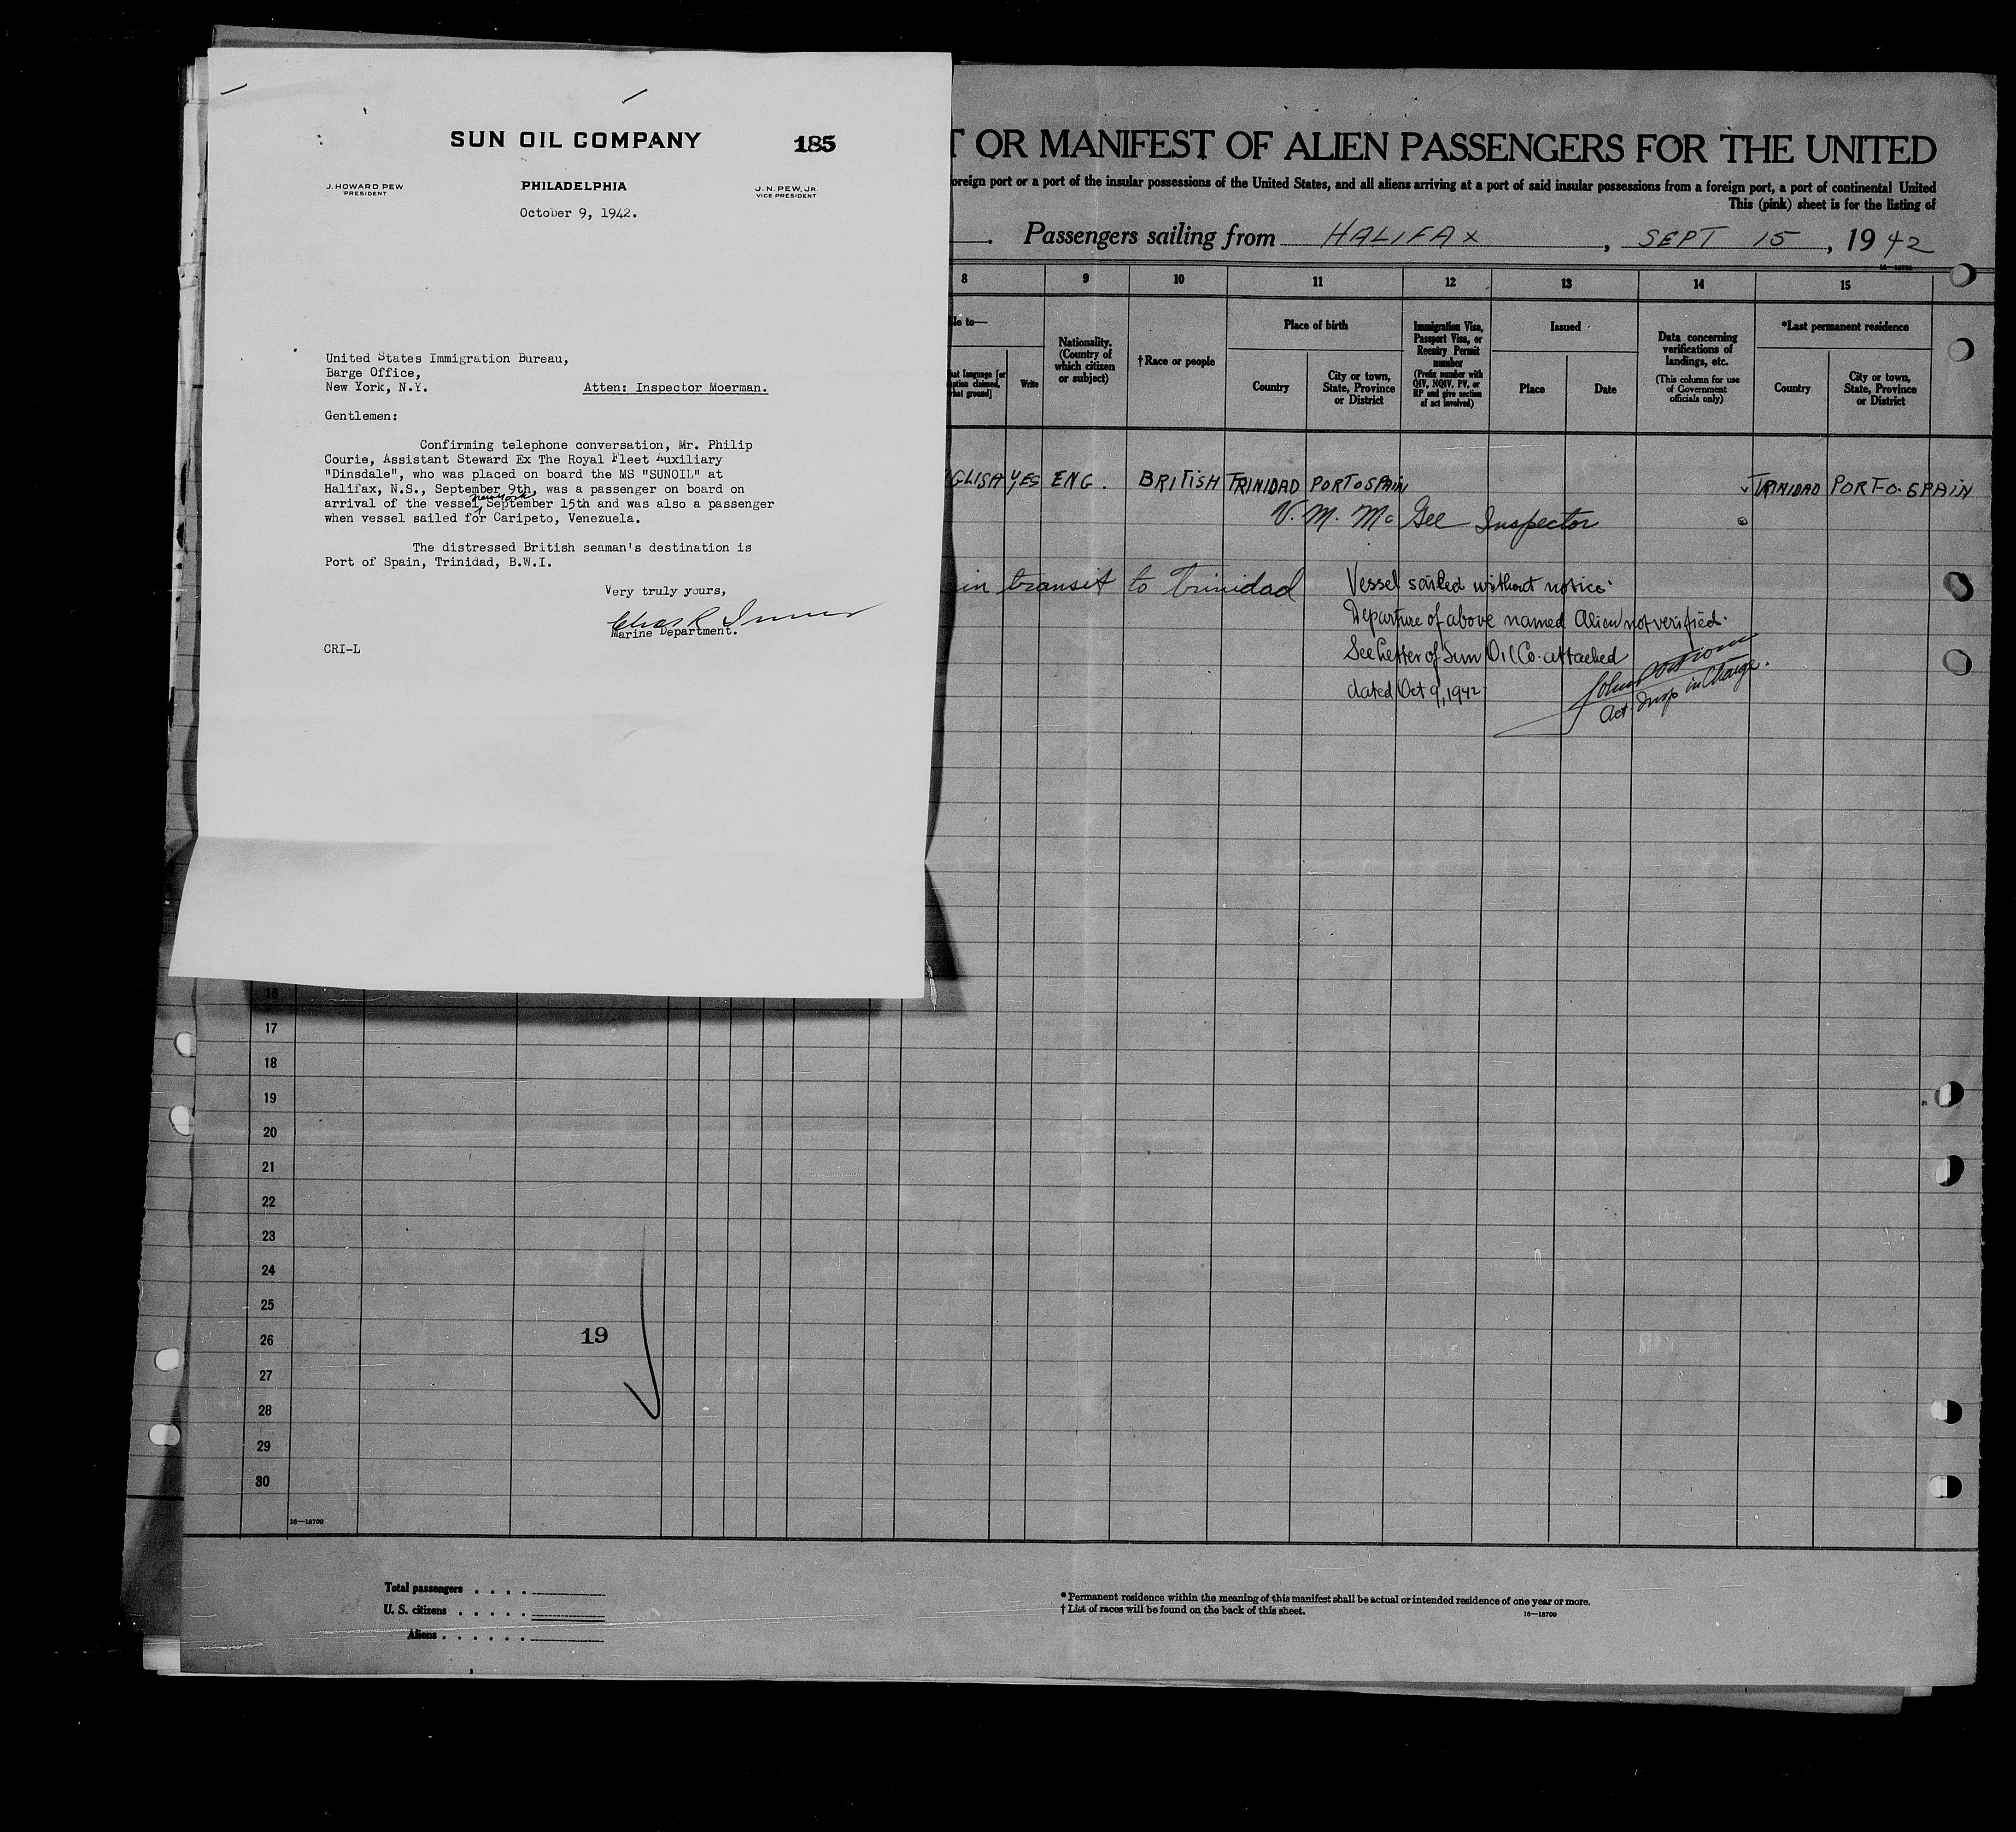 SUN OIL COMPANY
185
J. HOWARD PEW
PRESIDENT
PHILADELPHIA
J. N. PEW, JR.
VICE PRESIDENT
October 9, 1942.
United States Immigration Bureau,
Barge Office,
New York, N.Y.
Atten: Inspector Moerman.
Gentlemen:
Confirming telephone conversation, Mr. Philip
Courie, Assistant Steward Ex The Royal Fleet Auxiliary
"Dinsdale", who was placed on board the MS "SUNOIL" at
Halifax, N.S., September 9th, was a passenger on board on
New York
arrival of the vessel September 15th and was also a passenger
when vessel sailed for Caripeto, Venezuela.
The distressed British seaman's destination is
Port of Spain, Trinidad, B.W.I.
Very truly yours,
Marine Department.
CRI-L
T OR MANIFEST OF ALIEN PASSENGERS FOR THE UNITED
oreign port or a port of the insular possessions of the United States, and all aliens arriving at a port of said insular possessions from a foreign port, a port of continental United
This (pink) sheet is for the listing of
Passengers sailing from HALIFAX, SEPT 15, 1942
16—18709
8 9 10 11 12 13 14 15
le to—
hat language [or
ption claimed,
hat ground]
Write
Nationality.
(Country of
which citizen
or subject)
†Race or people
Place of birth
Country
City or town,
State, Province
or District
Immigration Visa,
Passport Visa, or
Reentry Permit
number
(Prefix number with
QIV, NQIV, PV, or
RP and give section
of act involved)
Issued
Place
Date
Data concerning
verifications of
landings, etc.
(This column for use
of Government
officials only)
*Last permanent residence
Country
City or town,
State, Province
or District
GLISH YES ENG. BRITISH TRINIDAD PORT O SPAIN TRINIDAD PORT-O-SPAIN
V. M. McGee Inspector
in transit to Trinidad
Vessel sailed without notice.
Departure of above named Alien not verified.
See Letter of Sun Oil Co. attached
dated Oct 9, 1942.
Act. Insp in Charge.
16
17
18
19
20
21
22
23
24
25
26
19
27
28
29
30
16—18709
Total passengers
U. S. citizens
Aliens
* Permanent residence within the meaning of this manifest shall be actual or intended residence of one year or more.
† List of races will be found on the back of this sheet.
16—18709